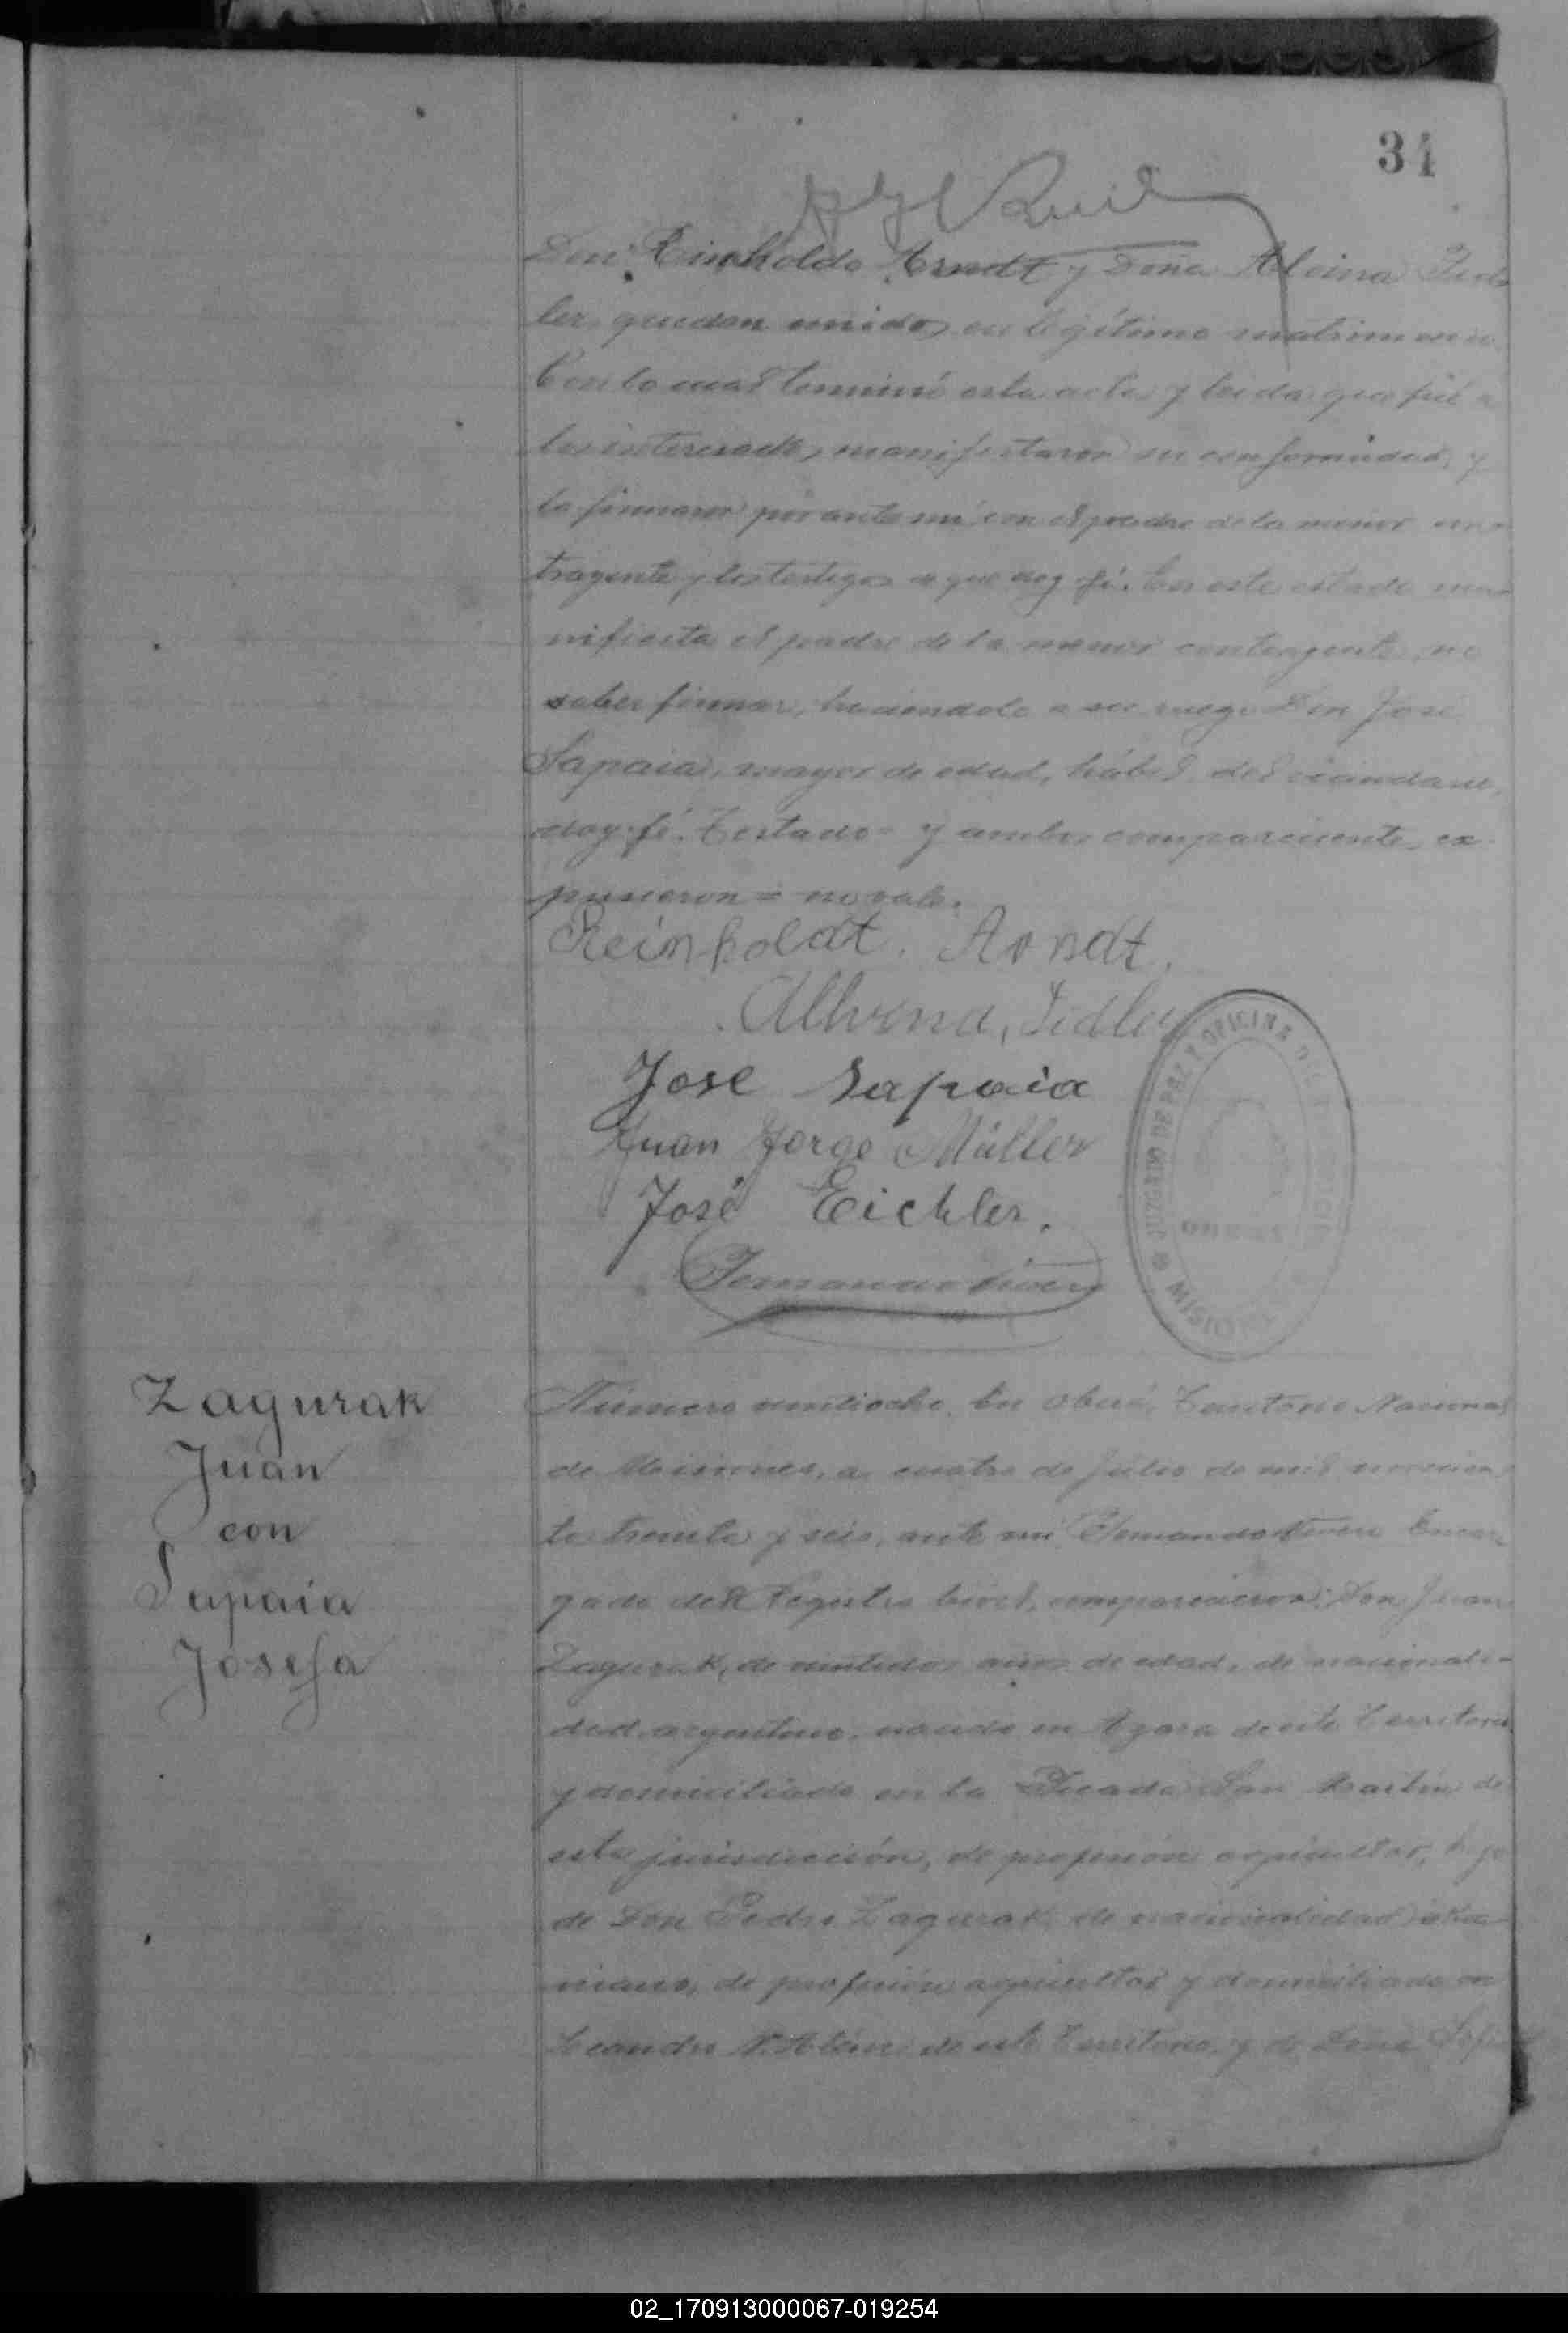 34
Don Reinholdo Arndt y Doña Alvina Fied
ler, quedan unidos en legítimo matrimonio.
Con lo cual terminó esta acta, y leida que fué a
los interesados, manifestaron su conformidad, y
la firmaron por ante mí con el padre de la menor con
trayente y los testigos de que doy fé. En este estado ma
nifiesta el padre de la menor contrayente, no
saber firmar, haciendolo a su ruego Don José
Sapaia, mayor de edad, hábil, del
doy fé. Testado = y ambos comparecientes ex
pusieron = no vale.
Reinholdt. Arndt.
José Sapaia
Juan Jorge Müller
José Eichler.
JUZGADO DE PAZ Y OFICINA DEL
MISIONES
Zagurak
Juan
con
Sapaia
Josefa
Número veintiocho. En Oberá, Territorio Nacional
de Misiones, a cuatro de Julio de mil novecien
tos treinta y seis, ante mí, Encar
gado del Registro Civil, comparecieron: Don Juan
Zagurak, de veintidos años de edad, de nacionali-
dad argentino, nacido en Azara de este Territorio
y domiciliado en la Picada San Martín de
esta jurisdicción, de profesión agricultor, hijo
de Don Pedro Zagurak, de nacionalidad ukra
niano, de profesión agricultor y domiciliado en
Leandro N. Alem de este Territorio, y de Doña
02_170913000067-019254